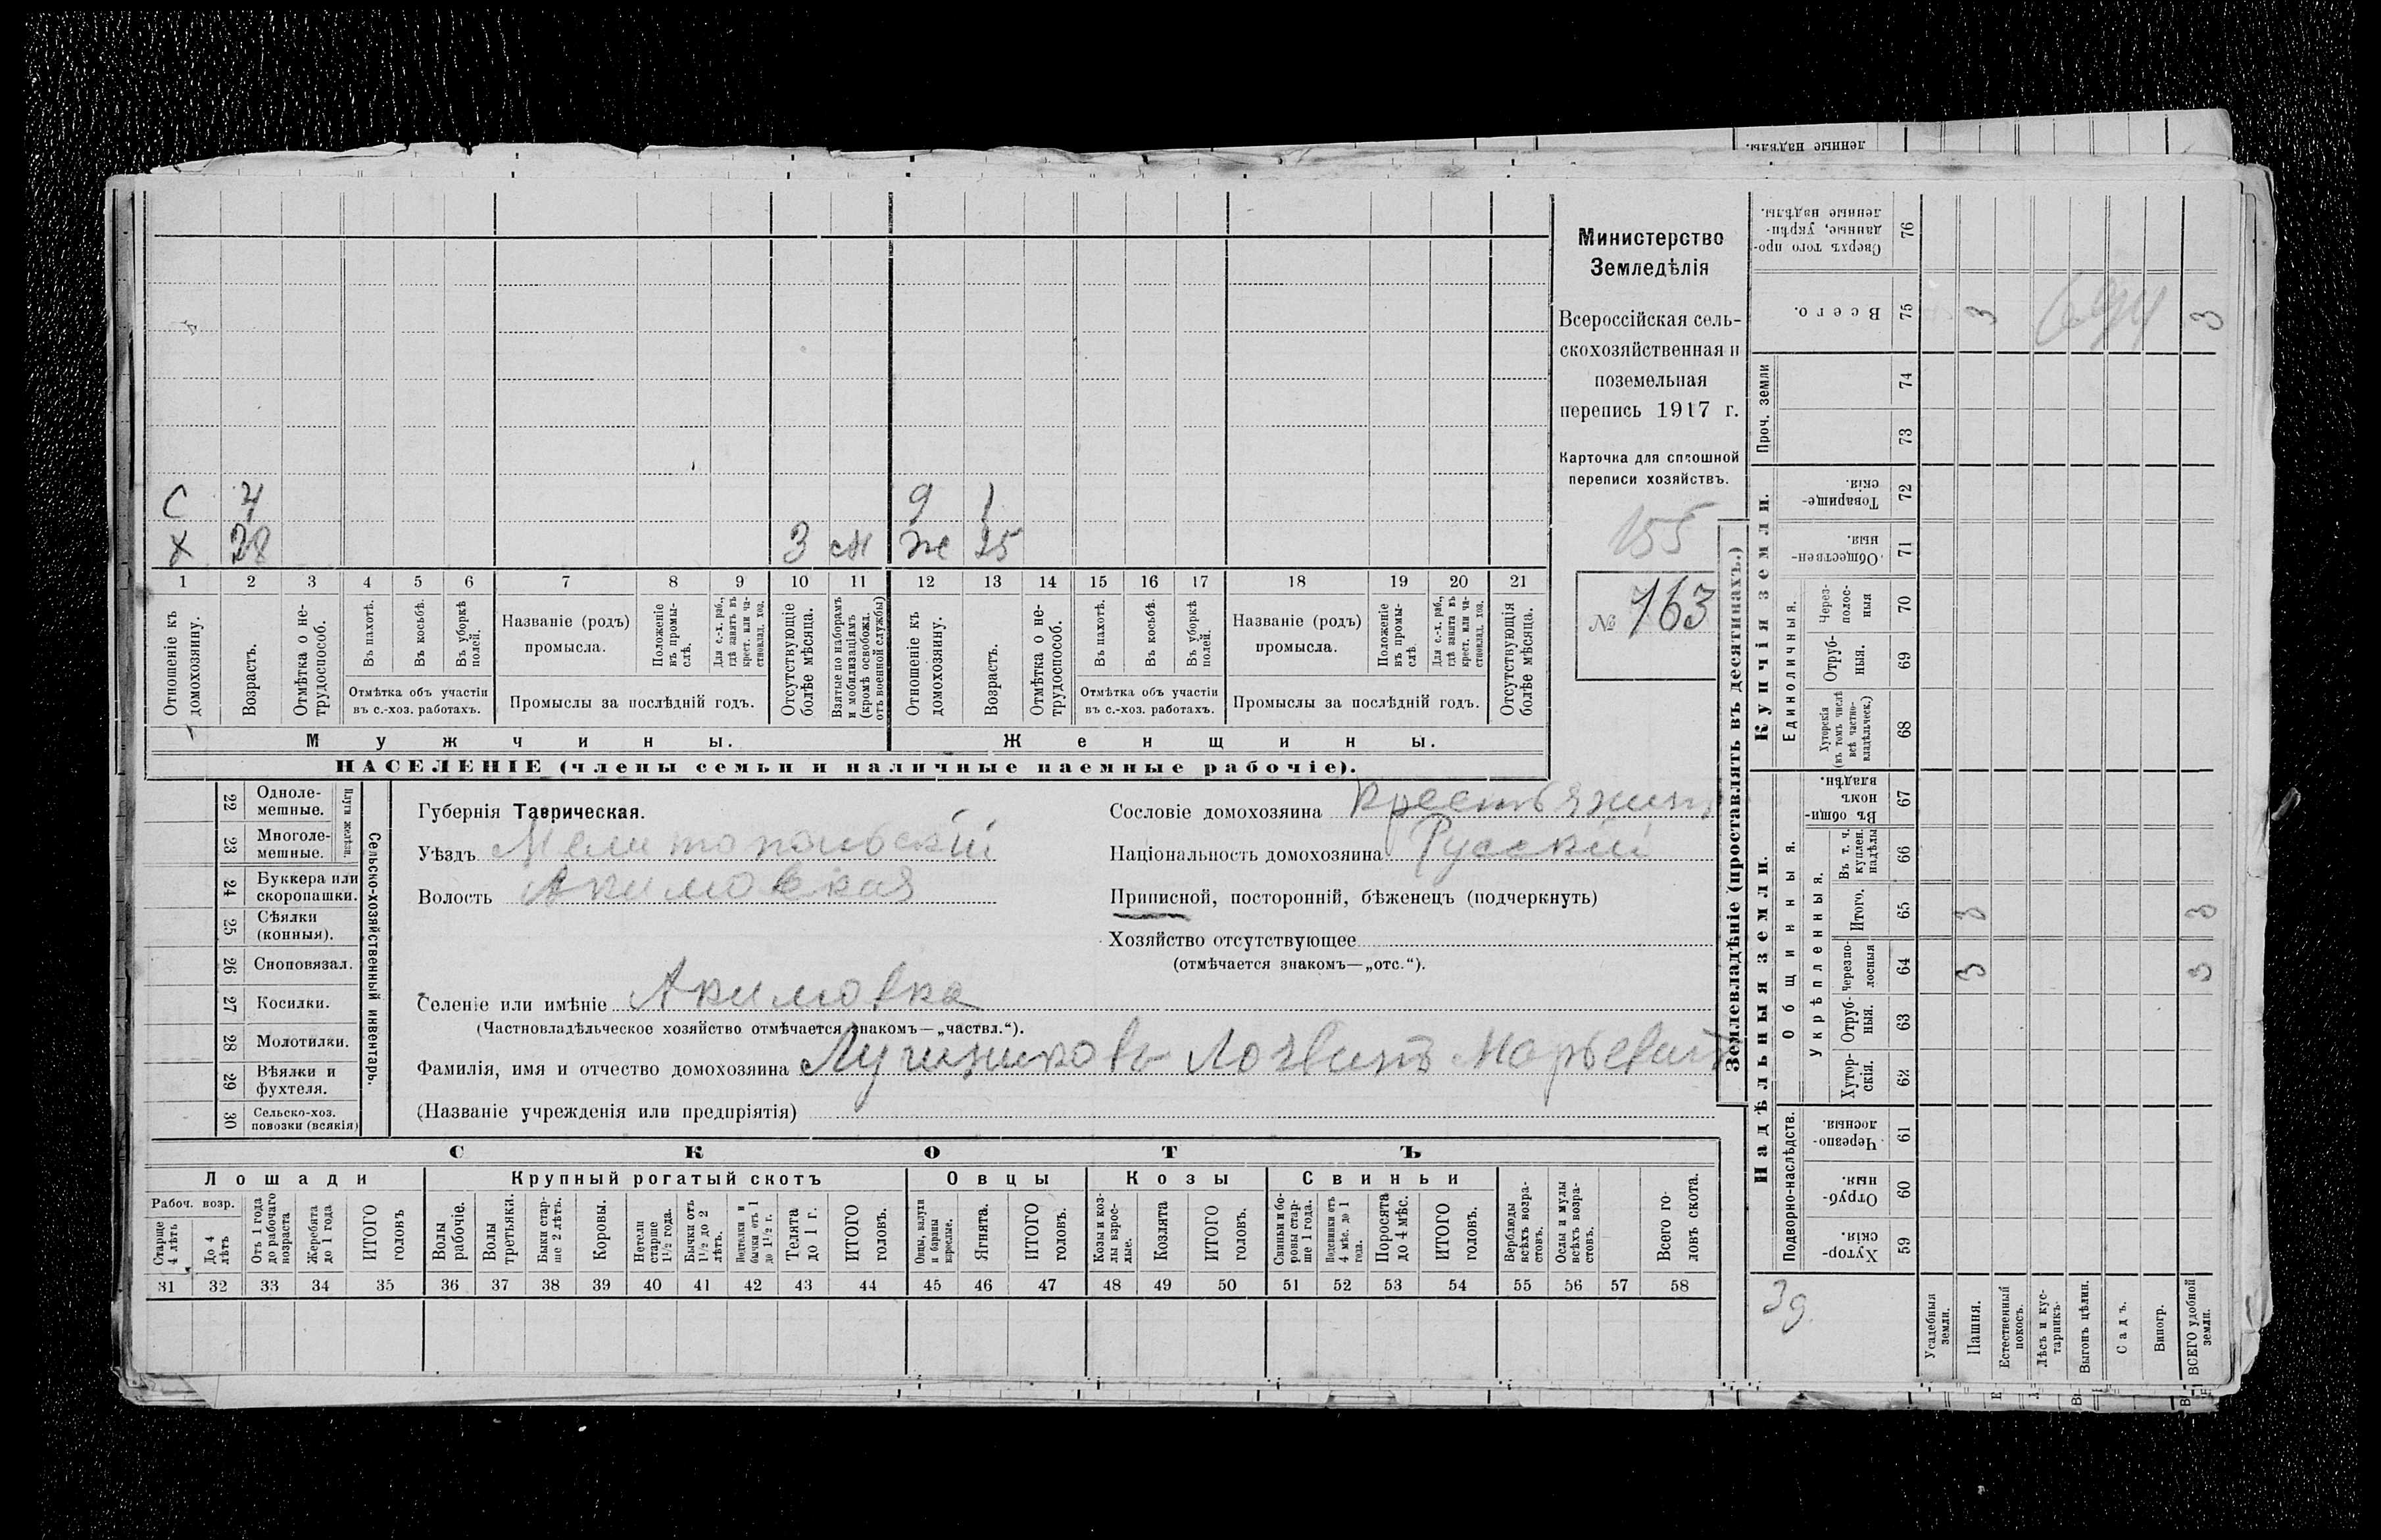 ленные надѣлы.
С 4 9 1
Х 28 3 см же 25
1 2 3 4 5 6 7 8 9 10 11 12 13 14 15 16 17 18 19 20 21
Отношеніе къ домохозяину.
Возрастъ.
Отмѣтка о нетрудоспособ.
Въ пахотѣ.
Въ косьбѣ.
Въ уборкѣ полей.
Отмѣтка объ участіи
въ с.-хоз. работахъ.
Названіе (родъ)
промысла.
Положеніе въ промыслѣ.
Для с.-х. раб., гдѣ занятъ въ крест. или частновлад. хоз.
Промыслы за послѣдній годъ.
Отсутствующіе болѣе мѣсяца.
Взятые по наборамъ и мобилизаціямъ (кромѣ освобожд. отъ военной службы)
Отношеніе къ домохозяину.
Возрастъ.
Отмѣтка о нетрудоспособ.
Въ пахотѣ.
Въ косьбѣ.
Въ уборкѣ полей.
Отмѣтка объ участіи
въ с.-хоз. работахъ.
Названіе (родъ)
промысла.
Положеніе въ промыслѣ.
Для с.-х. раб., гдѣ занята въ крест. или частновлад. хоз.
Промыслы за послѣдній годъ.
Отсутствующія болѣе мѣсяца.
Мужчины.
Женщины.
НАСЕЛЕНІЕ (члены семьи и наличные наемные рабочіе).
Министерство
Земледѣлія
Всероссійская сель-
скохозяйственная и
поземельная
перепись 1917 г.
Карточка для сплошной
переписи хозяйствъ.
155
№ 163
22 Одноле-
мешные.
23 Многоле-
мешные.
Плуги желѣзн.
24 Буккера или
скоропашки.
25 Сѣялки
(конныя).
26 Сноповязал.
27 Косилки.
28 Молотилки.
29 Вѣялки и
фухтеля.
30 Сельско-хоз.
повозки (всякія)
Сельско-хозяйственный инвентарь.
Губернія Таврическая.
Уѣздъ Мелитопольскій
Волость Акимовская
Сословіе домохозяина Крестьянинъ
Національность домохозяина Русскій
Приписной, посторонній, бѣженецъ (подчеркнуть)
Хозяйство отсутствующее
(отмѣчается знакомъ—„отс.“).
Селеніе или имѣніе Акимовка
(Частновладѣльческое хозяйство отмѣчается знакомъ—„частвл.“).
Фамилія, имя и отчество домохозяина
(Названіе учрежденія или предпріятія)
СКОТЪ
Лошади
Крупный рогатый скотъ
Овцы
Козы
Свиньи
Рабоч. возр.
Старше 4 лѣтъ
До 4 лѣтъ
Отъ 1 года до рабочаго возраста
Жеребята до 1 года
ИТОГО головъ
Волы рабочіе.
Волы третьяки.
Быки старше 2 лѣтъ.
Коровы.
Нетели старше 1½ года.
Бычки отъ 1½ до 2 лѣтъ.
Подтелки и бычки отъ 1 до 1½ г.
Телята до 1 г.
ИТОГО головъ.
Овцы, валухи и бараны взрослые.
Ягнята.
ИТОГО головъ.
Козы и козлы взрослые.
Козлята
ИТОГО головъ.
Свиньи и боровы старше 1 года.
Подсвинки отъ 4 мѣс. до 1 года.
Поросята до 4 мѣс.
ИТОГО головъ.
Верблюды всѣхъ возрастовъ.
Ослы и мулы всѣхъ возрастовъ.
Всего головъ скота.
31 32 33 34 35 36 37 38 39 40 41 42 43 44 45 46 47 48 49 50 51 52 53 54 55 56 57 58
Землевладѣніе (проставлять въ десятинахъ.)
Купчія земли.
Надѣльныя земли.
Сверхъ того проданные, укрѣпленные надѣлы. 76
Всего. 75 3 3
694
Проч. земли
74
73
Товарищескія. 72
Общественныя. 71
Единоличныя.
Черезполосныя 70
Отрубныя. 69
Хуторскія (въ томъ числѣ всѣ частновладѣльческ.) 68
Общинныя.
Въ общинномъ владѣн. 67
Укрѣпленныя.
Въ т. ч. куплен. надѣлы 66
Итого. 65 3 3
Черезполосныя 64 3 3
Отрубныя. 63
Хуторскія. 62
Подворно-наслѣдств.
Черезполосныя. 61
Отрубныя. 60
Хуторскія. 59
Усадебныя земли.
Пашня.
Естественный покосъ.
Лѣсъ и кустарникъ.
Выгонъ цѣлин.
Садъ.
Виногр.
ВСЕГО удобной земли.